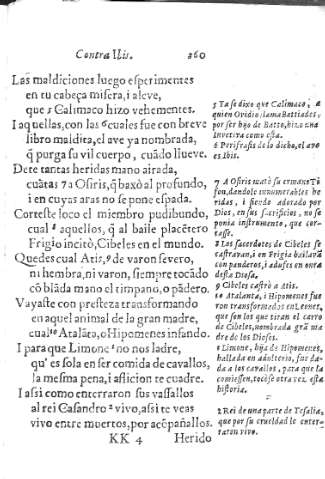 Contra Ibis. 260
Las maldiciones luego esperimentes
en tu cabeça misera, i aleve,
que 5 Calimaco hizo vehementes.
I aquellas, con las 6 cuales fue con breve
libro maldita, el ave ya nombrada,
q̃ purga su vil cuerpo, cuãdo llueve.
Dete tantas heridas mano airada,
cuãtas 7 a Osiris, q̃ baxò al profundo,
i en cuyas aras no se pone espada.
Corteste loco el miembro pudibundo,
cual 8 aquellos, q̃ al baile placẽtero
Frigio incitò, Cibeles en el mundo.
Quedes cual Atis, 9 de varon severo,
ni hembra, ni varon, siempre tocãdo
cõ blãda mano el timpano, o pãdero.
Vayaste con presteza transformando
en aquel animal de la gran madre,
cual 10 Atalãta, o Hipomenes infando.
I para que Limone 1 no nos ladre,
qu'es sola en ser comida de cavallos,
la mesma pena, i aflicion te cuadre.
I assi como enterraron sus vassallos
al rei Casandro 2 vivo, assi te veas
vivo entre muertos, por acõpañallos.
KK 4 Herido
5 Ta se dixo que Calimaco, a
quien Ovidio llama Battiades,
por ser hijo de Batto, hizo una
Invetiva como esta.
6 Perifrasis de lo dicho, el ave
es Ibis.
7 A Osiris matò su ermano Tifon,
dandole innumerables heridas,
i siendo adorado por
Dios, en sus sacrificios, no se
ponia instrumento, que cortasse.
8 Los sacerdotes de Cibeles se
castravan, i en Frigia bailavã
con panderos, i adufes en onra
desta Diosa.
9 Cibeles castrò a Atis.
10 Atalanta, i Hipomenes fueron
transformados en Leones,
que son los que tiran el carro
de Cibeles, nombrada grã madre
de los Dioses.
1 Limone, hija de Hipomenes,
hallada en adulterio, fue dada
a los cavallos, para que la
comiessen, tocòse otra vez esta
historia.
2 Rei de una parte de Tesalia,
que por su crueldad le enterraron
vivo.